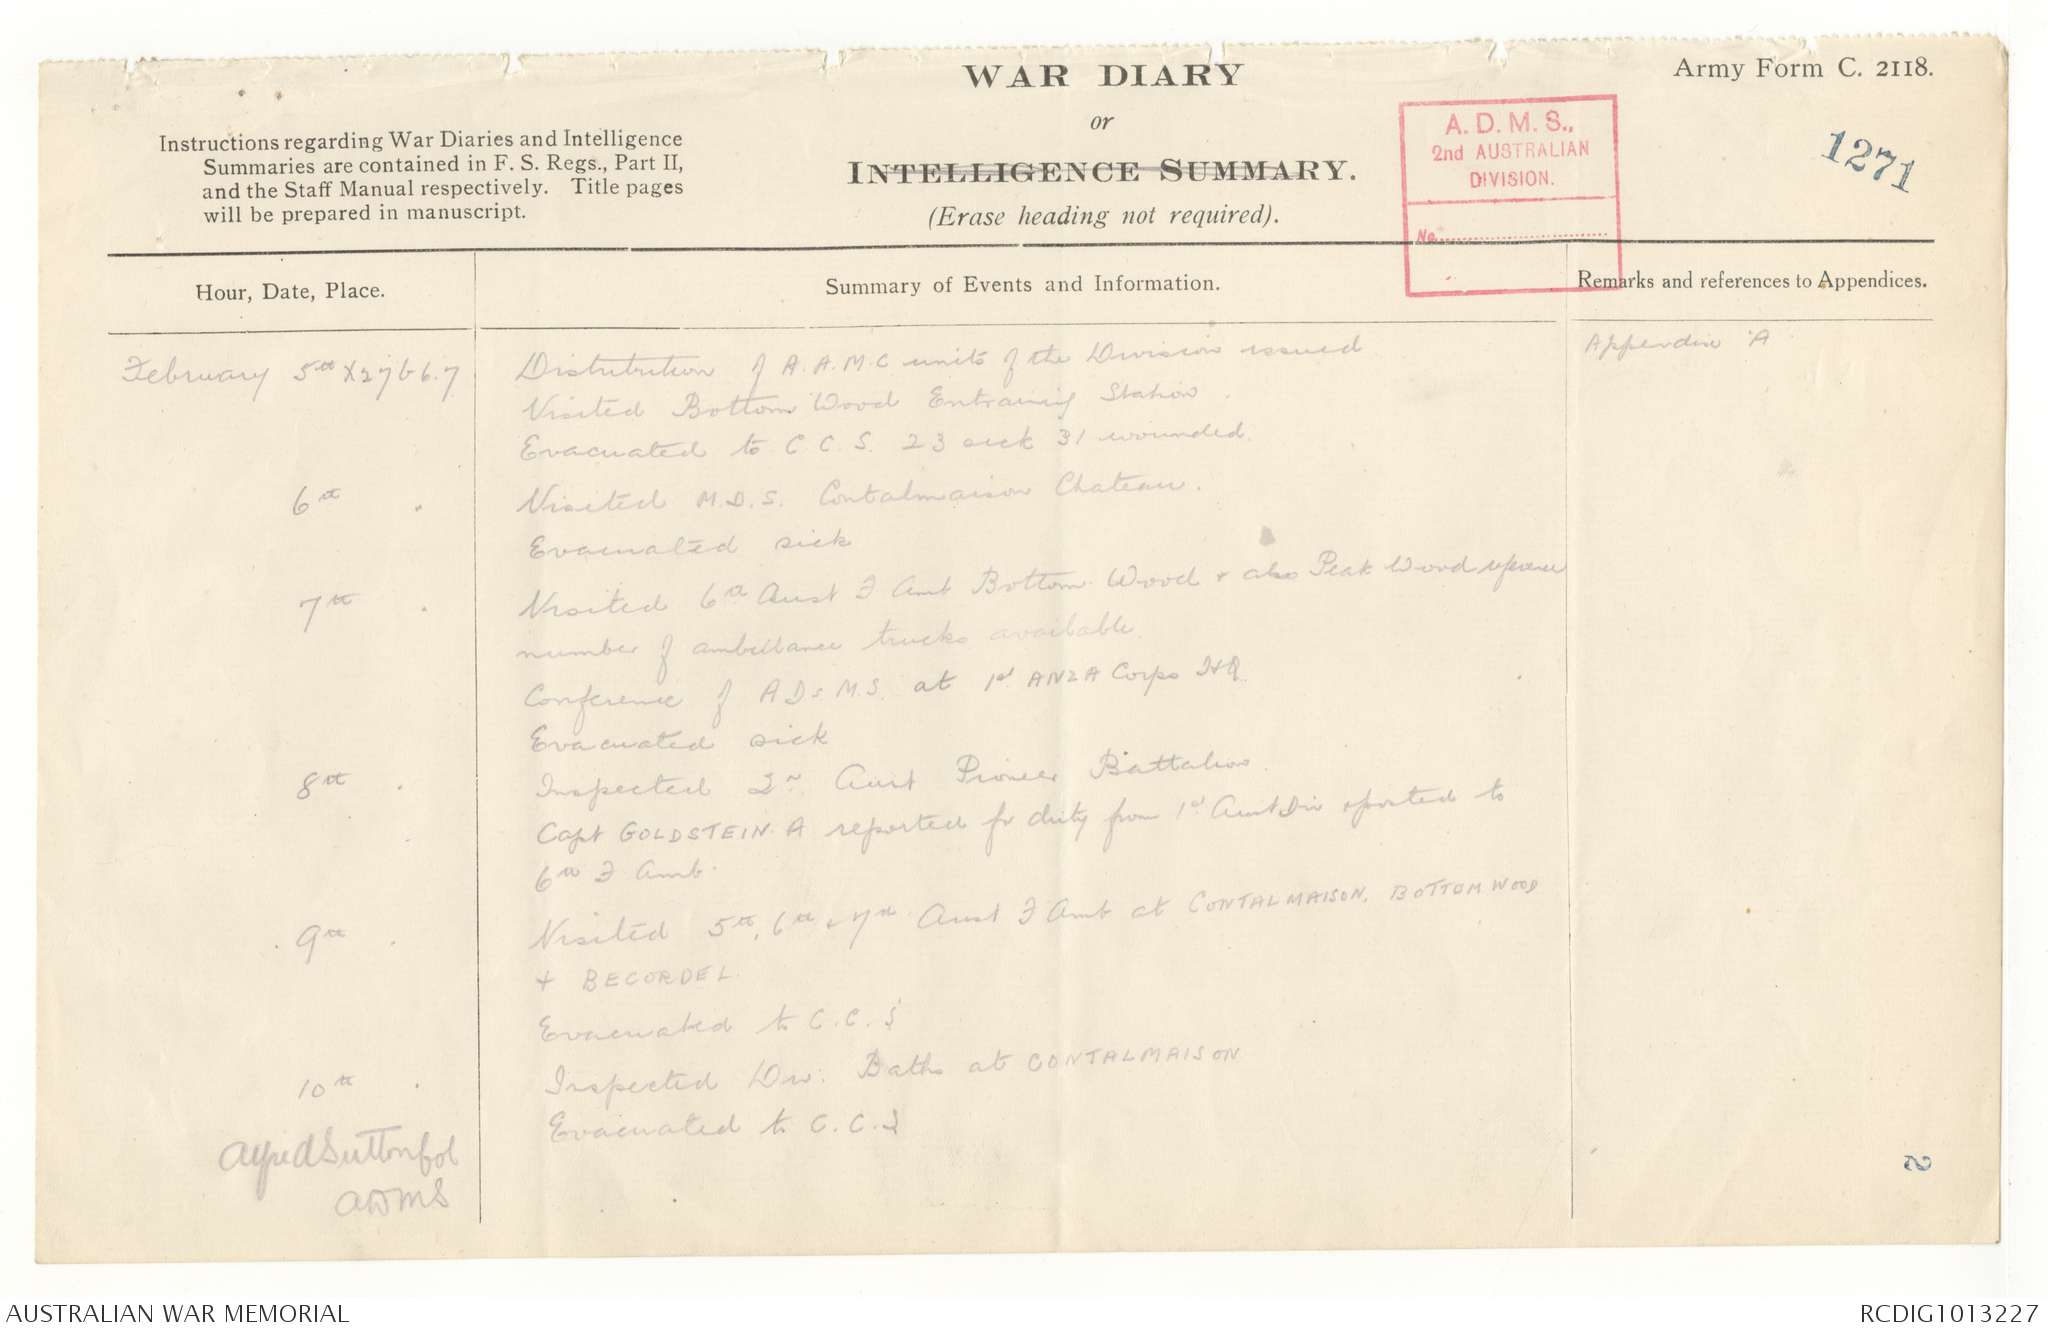 WAR DIARY
or
INTELLIGENCE SUMMARY.
(Erase heading not required).
Army Form C. 2118.
Instructions regarding War Diaries and Intelligence
Summaries are contained in F. S. Regs., Part II,
and the Staff Manual respectively. Title pages
will be prepared in manuscript.
A. D. M. S.,
2nd AUSTRALIAN
DIVISION.
No.
1271
Hour, Date, Place.
Summary of Events and Information.
Remarks and references to Appendices.
February 5th X27b6.7
Distribution of A.A.M.C units of the Division issued
Appendix 'A
Visited Bottom Wood Entraining Station.
Evacuated to C.C.S. 23 sick 31 wounded.
6th
Visited M.D.S. Contalmaison Chateau.
Evacuated sick
7th
Visited 6th Aust F Amb Bottom Wood + also Peak Wood reference
number of ambulance trucks available.
Conference of ADsM.S. at 1st ANZA Corps HQ
Evacuated sick
8th
Inspected 2n. Aust Pioneer Battalion.
Capt GOLDSTEIN. A reported for duty from 1st Aust Div & posted to
6th F Amb.
9th
Visited 5th, 6th & 7th Aust F Amb at CONTALMAISON, BOTTOM WOOD
+ BECORDEL.
Evacuated to C.C.S
10th
Inspected Div. Baths at CONTALMAISON
Evacuated to C.C.S
Alfred Sutton Col
ADMS
2
AUSTRALIAN WAR MEMORIAL
RCDIG1013227